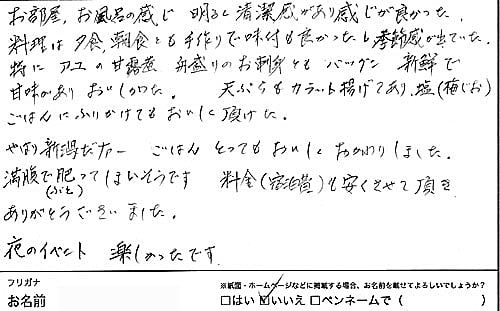 お部屋、お風呂の感じ 明るく清潔感があり感じが良かった。
料理は夕食、朝食とも手作りで味付も良かったし季節感が出ていた。
特に アユの甘露煮 舟盛りのお刺身も バツグン 新鮮で
甘味があり おいしかった。 天ぷらもカラット揚げてあり、塩(梅じお)
ごはんにふりかけてもおいしく頂けた。
やはり新潟だナー ごはん とってもおいしく おかわりしました。
満腹で肥ってしまいそうです 料金(宿泊費)も安くさせて頂き
(ふと)
ありがとうございました。
夜のイベント 楽しかったです
フリガナ
お名前
※紙面・ホームページなどに掲載する場合、お名前を載せてよろしいでしょうか?
□はい ☑いいえ □ペンネームで ( )